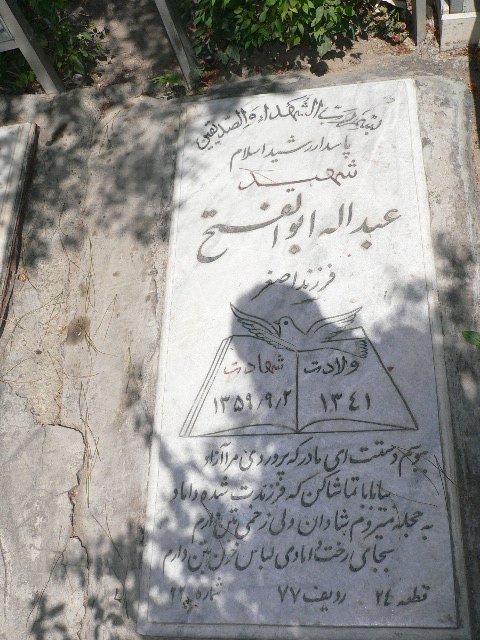 بسم رب الشهداء و الصدیقین
پاسدار رشید اسلام
شهید
عبداله ابوالفتح
فرزند اصغر
ولادت شهادت
۱۳٤۱ ۱۳۵۹/۹/۲
ببوسم دستت ای مادر که پروردی مرا آزاد
بیا بابا تماشا کن که فرزندت شده داماد
به حجله میروم شادان ولی زخمی بتن دارم
بجای رخت دامادی لباس خون بتن دارم
قطعه ۲٤ ردیف ۷۷ شماره